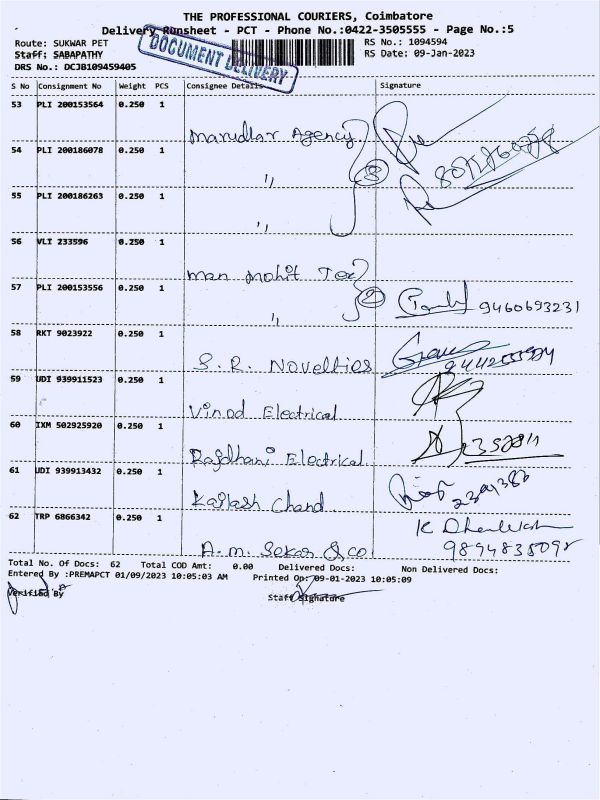 THE PROFESSIONAL COURIERS, Coimbatore
Delivery Runsheet - PCT - Phone No.:0422-3505555 - Page No.:5
Route: SUKWAR PET RS No.: 1094594
Staff: SABAPATHY RS Date: 09-Jan-2023
DRS No.: DCJB109459405
DOCUMENT DELIVERY
S No Consignment No Weight PCS Consignee Details Signature
53 PLI 200153564 0.250 1
Marudhar Agency
54 PLI 200186078 0.250 1
" 3
55 PLI 200186263 0.250 1
"
56 VLI 233596 0.250 1
Man Mohit Tex
57 PLI 200153556 0.250 1
" 2 9460693231
58 RKT 9023922 0.250 1
S. R. Novelties
59 UDI 939911523 0.250 1
Vinod Electrical
60 IXM 502925920 0.250 1
Rajdhani Electrical
61 UDI 939913432 0.250 1
Kailash Chand
62 TRP 6866342 0.250 1
A. M. Sekar & Co
Total No. Of Docs: 62 Total COD Amt: 0.00 Delivered Docs: Non Delivered Docs:
Entered By :PREMAPCT 01/09/2023 10:05:03 AM Printed On: 09-01-2023 10:05:09
Verified By Staff Signature